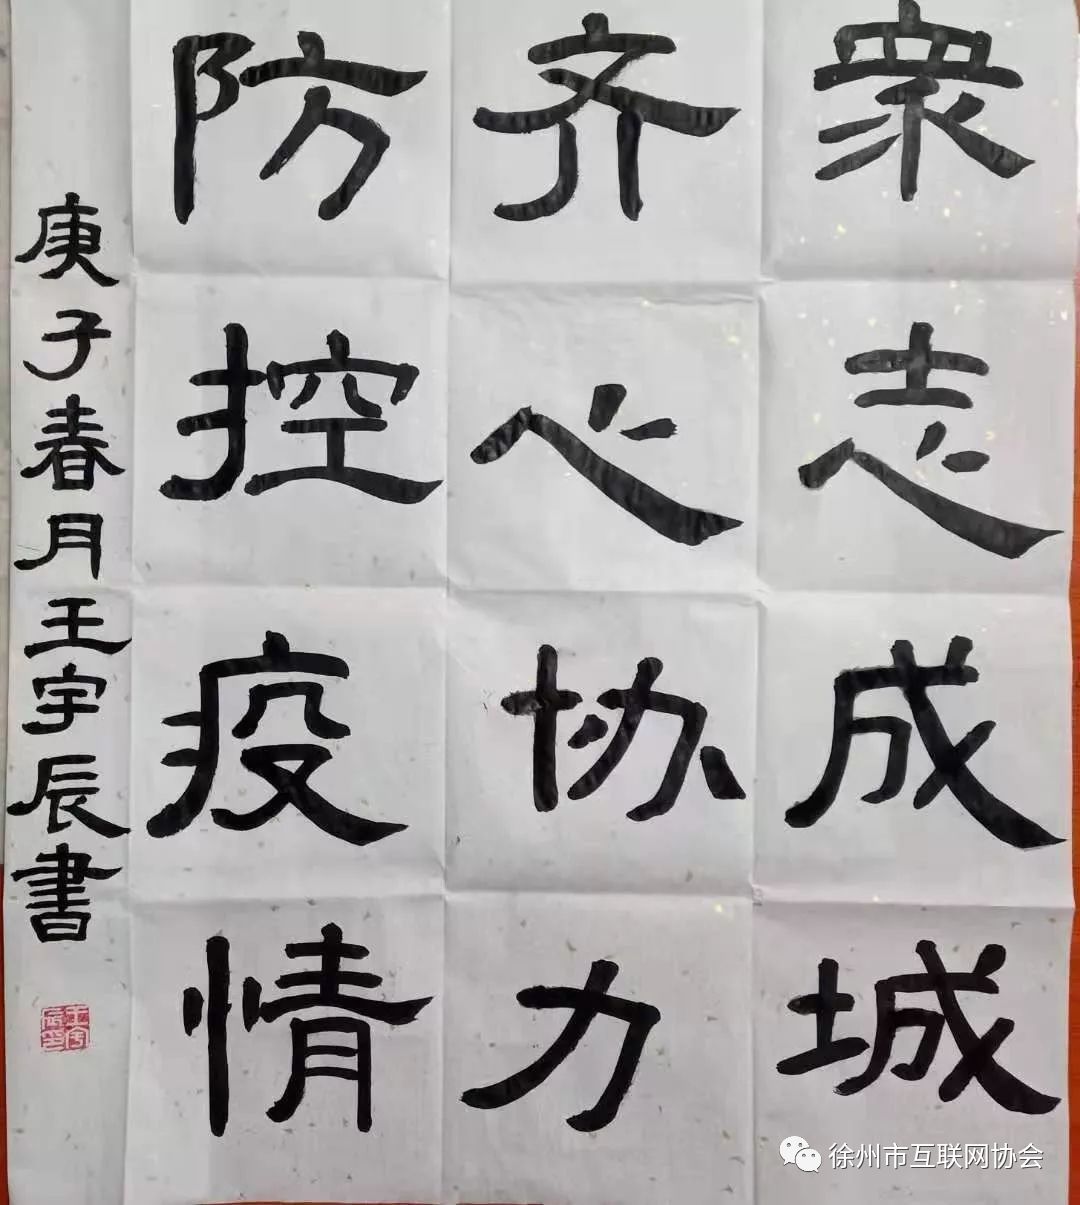 衆志成城
齐心协力
防控疫情
庚子春月王宇辰書
王宇辰印
徐州市互联网协会